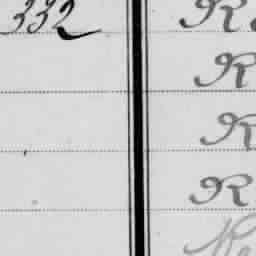 332 R
R
R
R